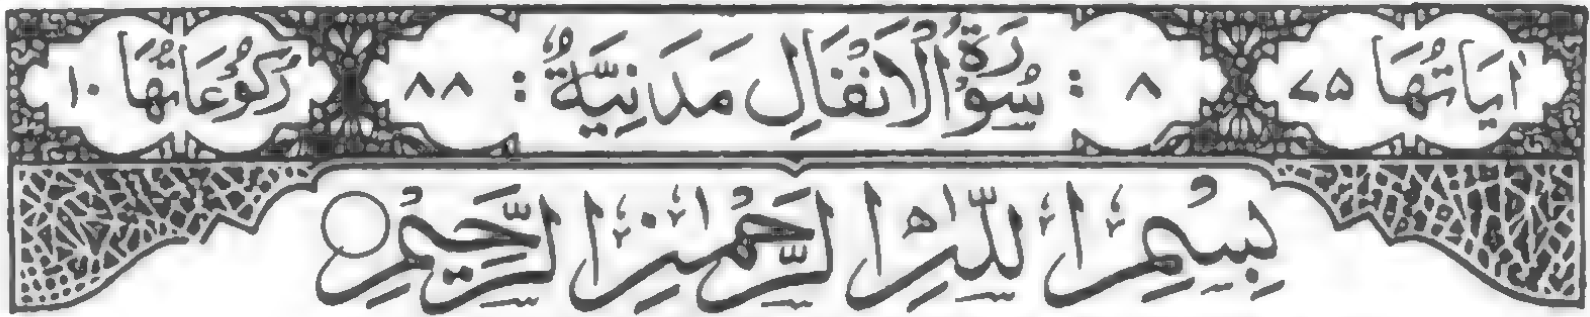 اٰيَاتُهَا ٧٥ ٨ : سُوْرَةُ الْاَنْفَالِ مَدَنِيَّةٌ : ٨٨ رُكُوْعَاتُهَا ١٠
بِسْمِ اللّٰهِ الرَّحْمٰنِ الرَّحِيْمِ